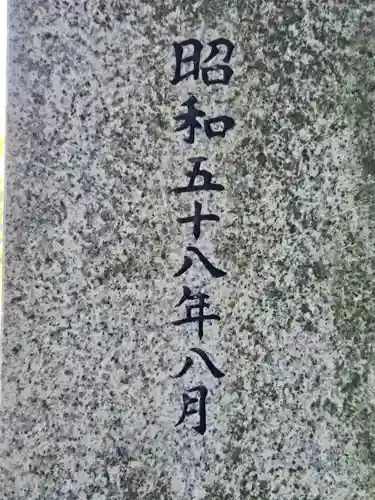 昭和五十八年八月